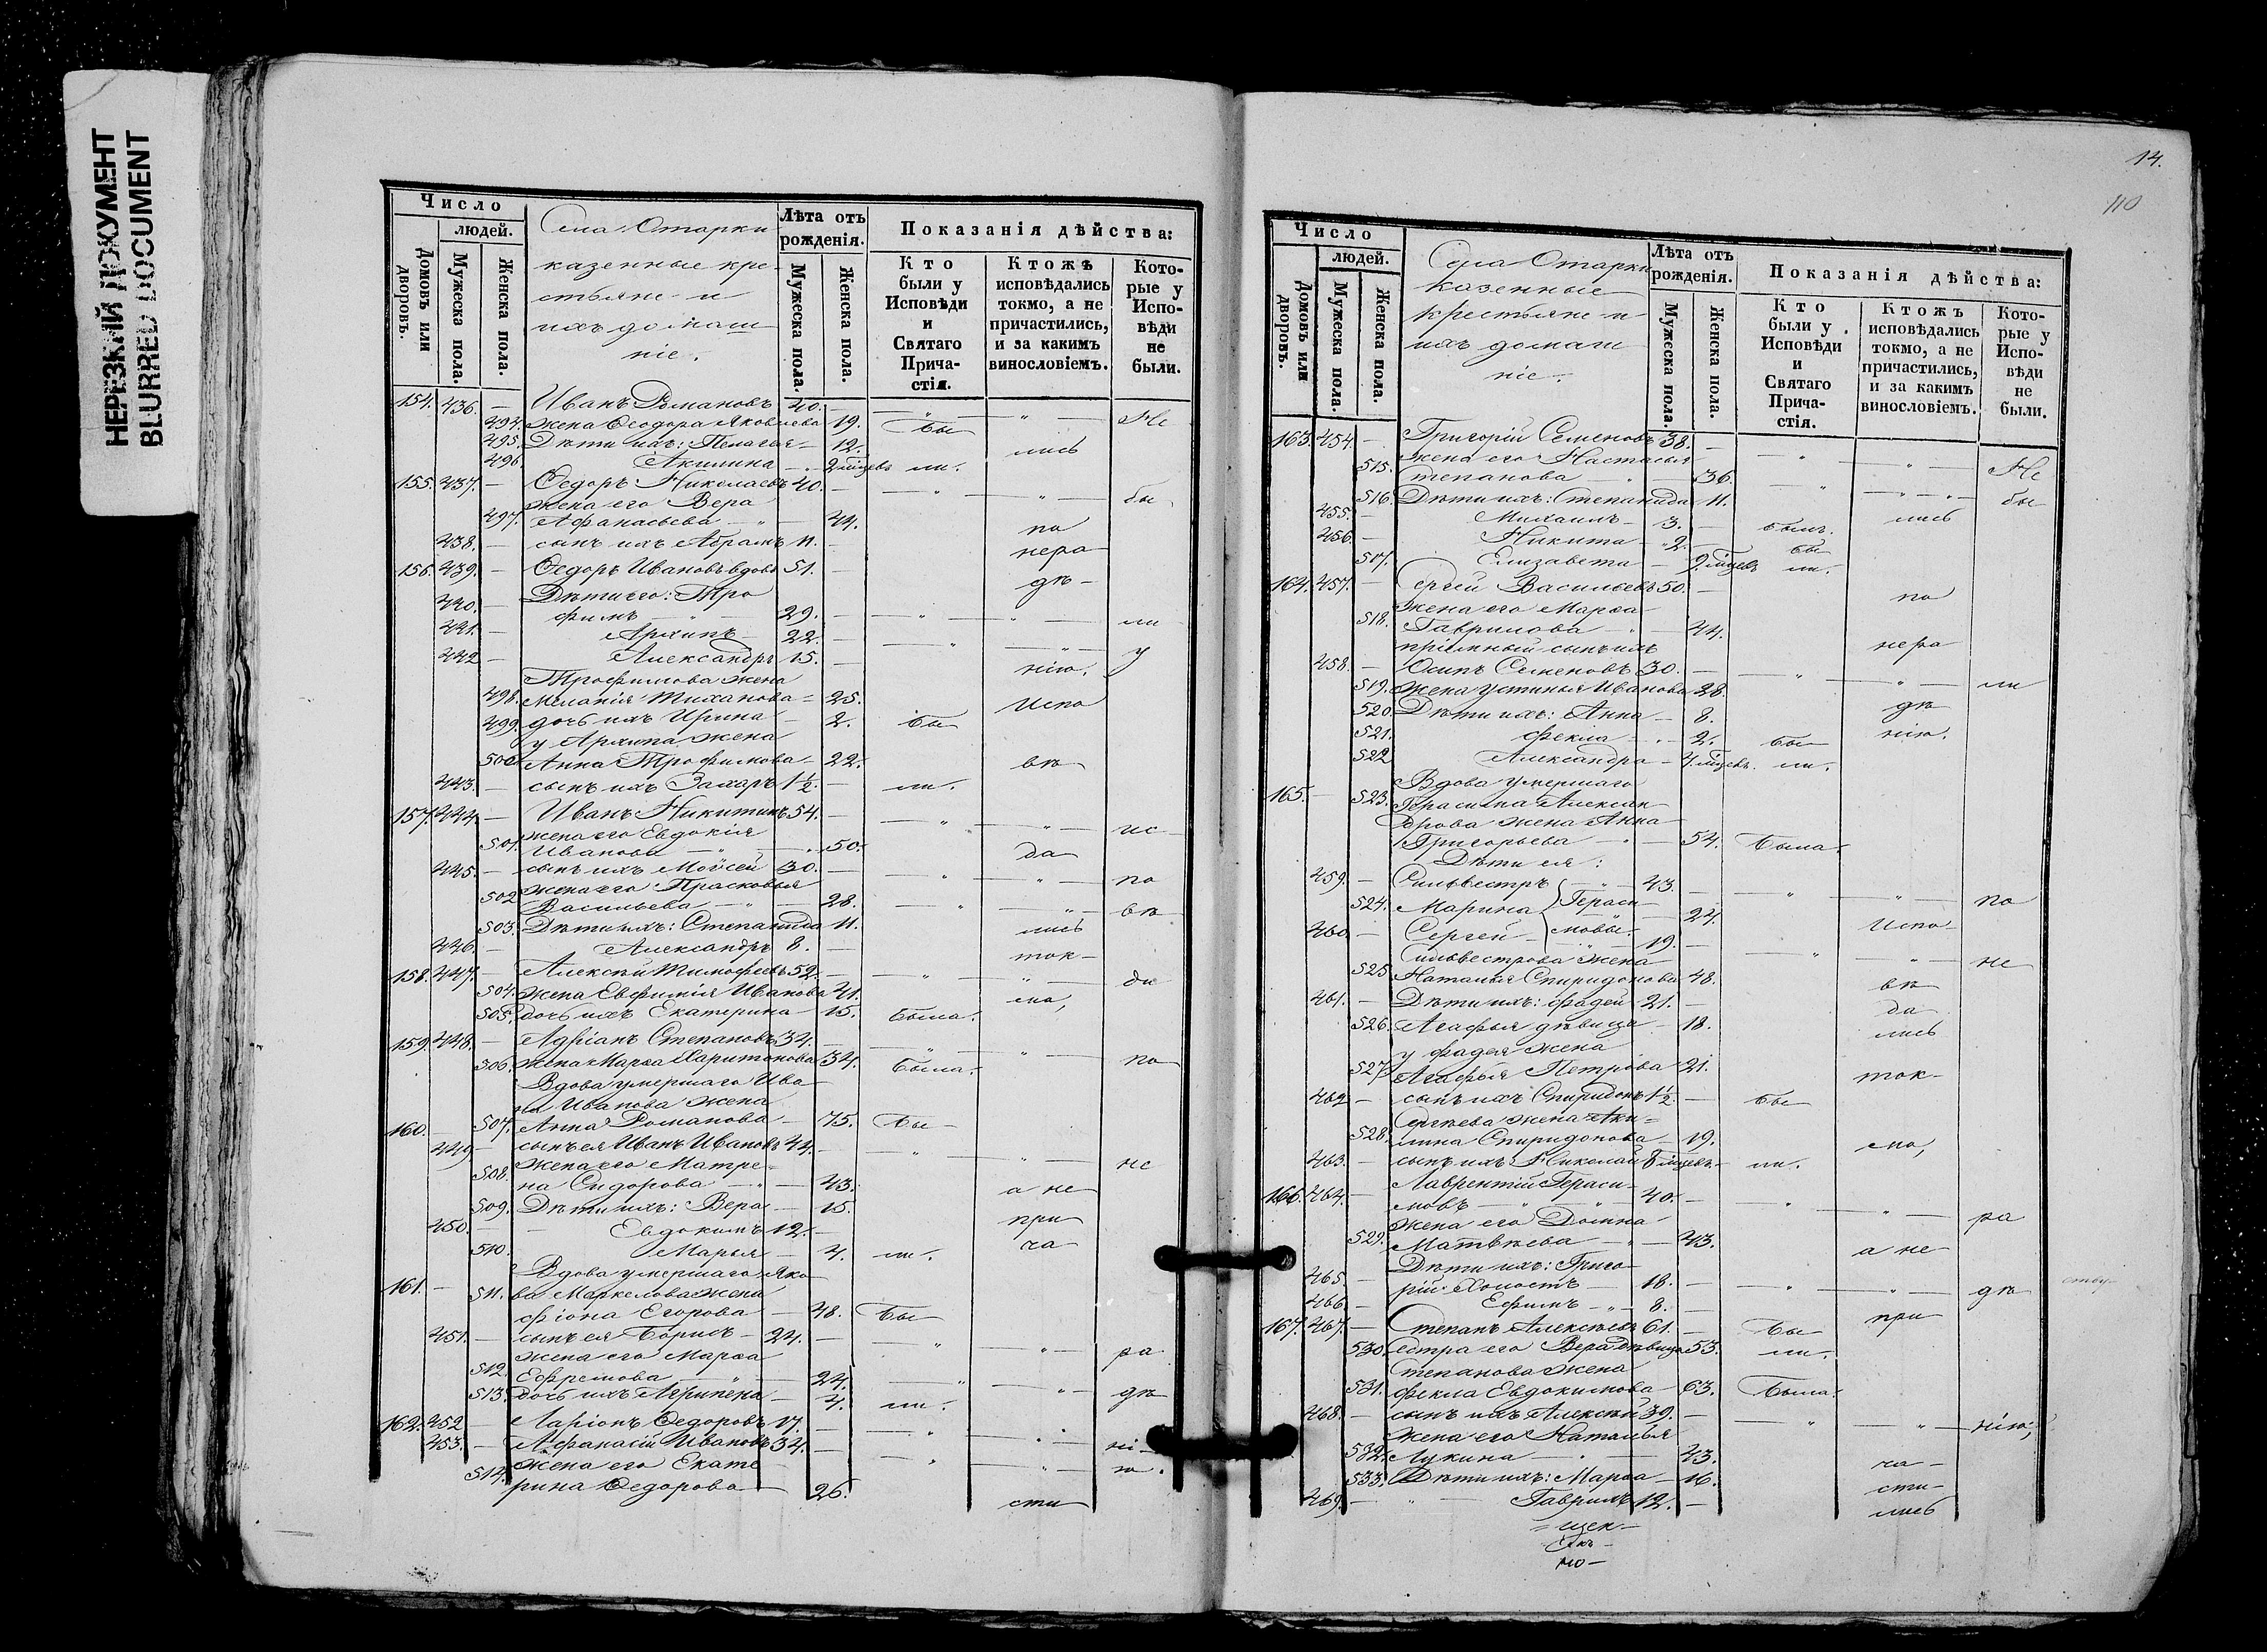 НЕРЕЗКИЙ ДОКУМЕНТ
BLURRED DOCUMENT
Число
людей.
Домовъ или дворовъ.
Мужеска пола.
Женска пола.
Села Старки
казенные кре-
стьяне и
ихъ домаш
ніе.
Лѣта отъ рожденія.
Мужеска пола.
Женска пола.
Показанія дѣйства:
Кто были у Исповѣди и Святаго Прича- стія.
Ктожъ исповѣдались токмо, а не причастились, и за какимъ винословіемъ.
Кото- рые у Испо- вѣди не были.
154. 436. — Иванъ Романовъ 40. — — " — " — Не
494. жена Ѳеодора Яковлева 19. бы
495. Дѣти ихъ: Пелагея — 12. лись
496. Акилина — " 2 мѣсѣвъ ли.
155. 437. — Ѳедоръ Николаевъ 40. — — " — " — бы
жена его Вера
497. Афанасьева — " — 44. по
438. — сынъ ихъ Абрамъ 11. — нера
156. 439. — Ѳедоръ Ивановъ вдовъ 51. — дѣ-
Дѣти его: Тро
440. — фимъ — " — 29. — — " — " — ли
441. — Архипъ — 22. — — " — " — у
442 — Александръ 15. — нію.
Трофимова жена
498. Меланія Тиханова — 25. Испо
499. дочь ихъ Ирина — 2. бы
у Архипа жена
500 Анна Трофимова — 22. вѣ
443. — сынъ ихъ Захаръ 1½. — ли.
157. 444. — Иванъ Никитинъ 54. — — " — " — ис
жена его Евдокія
501. Иванова — " — 50. да
445. — сынъ ихъ Моѵсей 30. — — " — " — по
жена его Прасковья
502 Васильева — " — 28. — " — " — вѣ
503. Дѣти ихъ: Степанида 11. лись
446. — Александръ 8. — ток-
158. 447. — Алексѣй Тимофеевъ 52. — — " — " — ди
504. жена Евфимія Иванова 41. мо,
505. дочь ихъ Екатерина — 15. была.
159. 448. — Адріанъ Степановъ 34. — — " — " — по
506. жена Марѳа Харитонова 34. была.
Вдова умершаго Ива
на Иванова жена
160. — 507. Анна Романова — 75. бы-
449 — сынъ ея Иванъ Ивановъ 44. — — " — " — не
жена его Матре-
508. на Сидорова — " — 43. а не
509. Дѣти ихъ: Вера — 15.
450. — Евдокимъ 12. — при
510. Марья — 4. ли. ча
Вдова умершаго Яко
161. — 511. ва Маркелова жена
фіона Егорова — 48. бы
451. — сынъ ея Борисъ — 24. — — " — " — ра
жена его Марѳа
512. Ефремова — " — 24. — " — " — дѣ
513. дочь ихъ Агрипена — 4. ли.
162. 452 — Ларіонъ Ѳедоровъ 17. — — " — " — ні-
453. — Афанасій Ивановъ 34. — — " — " — ю.
жена его Екате
514. рина Ѳедорова 26. сти
14.
110
Число
людей.
Домовъ или дворовъ.
Мужеска пола.
Женска пола.
Села Старки
казенные
крестьяне и
ихъ домаш
ніе.
Лѣта отъ рожденія.
Мужеска пола.
Женска пола.
Показанія дѣйства:
Кто были у Исповѣди и Святаго Прича- стія.
Ктожъ исповѣдались токмо, а не причастились, и за какимъ винословіемъ.
Кото- рые у Испо- вѣди не были.
163. 454 — Григорій Семеновъ 38. — — " — " — Не
жена его Настасья
515. Степанова " 36. — " — " — бы
516. Дѣти ихъ: Степанида 11. лись
455. — Михаилъ — 3. — былъ.
456. — Никита — " 2. — бы
517. Елизавета — 9. мѣсѣвъ ли.
164. 457. — Сергѣй Васильевъ 50. — по
жена его Марѳа
518. Гаврилова — " — 44.
пріемный сынъ ихъ нера
458. — Осипъ Семеновъ 30. — — " — " — ли
519. жена Устинья Иванова 28. дѣ
520. Дѣти ихъ: Анна — 8. нію.
521. Фекла — " — 2. бы
522 Александра — 4. мѣсѣвъ. ли.
Вдова умершаго
165. — 523. Герасима Алексан
дрова жена Анна
Григорьева — " — 54. была.
Дѣти ея:
459. — Сильвестръ — " — 43. — — " — " — по
524. Марина Гераси- — 24. Испо-
460 — Сергей — мовы. — 19. — — " — " — не
Сильвестрова жена
525 Наталья Спиридонова 48. вѣ
461. — Дѣти ихъ: Фадей — 21. — да
526. Агафья дѣвица — 18. лись
у Фадея жена
527 Агафья Петрова — 21. ток-
462 — сынъ ихъ Спиридонъ 1½ — бы
Сергѣева жена Аки-
528. лина Спиридонова — 19. мо,
463. — сынъ ихъ Николай 8 мѣсѣвъ — ли.
166. 464. — Лаврентій Гераси-
мовъ — " — 40. — — " — " — ра
жена его Домна
529. Матвѣева — " — 43. а не
Дѣти ихъ: Григо-
465. — рій холостъ — 18. — — " — " — дѣ
466. — Ефимъ — " — 8. — при
167. 467. — Степанъ Алексѣевъ 61. — бы
530. Сестра его Вера дѣвица 53. ли.
Степанова жена
531. Фекла Евдокимова — 63. была.
468. — сынъ ихъ Алексѣй 39. — — " — " — нію,
жена его Наталья
532. Лукина — " — 43. ча-
533. Дѣти ихъ: Марѳа — 16. сти-
469. — Гаврилъ 12. — лись